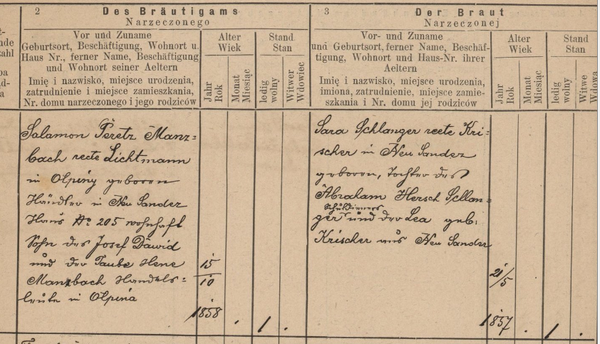 2
Des Bräutigams
Narzeczonego
3
Der Braut
Narzeczonej
Vor und Zuname
Geburtsort, Beschäftigung, Wohnort u.
Haus Nr., ferner Name, Beschäftigung
und Wohnort seiner Aeltern
Imię i nazwisko, miejsce urodzenia,
zatrudnienie i miejsce zamieszkania,
Nr. domu narzeczonego i jego rodziców
Alter
Wiek
Jahr
Rok
Monat
Miesiąc
Stand
Stan
ledig
wolny
Witwer
Wdowiec
Vor- und Zuname
und Geburtsort, ferner Name, Beschäf-
tigung, Wohnort und Haus-Nr. ihrer
Aeltern
Imię i nazwisko, miejsce urodzenia,
imiona, zatrudnienie, miejsce zamie-
szkania i Nr. domu jej rodziców
Alter
Wiek
Jahr
Rok
Monat
Miesiąc
Stand
Stan
ledig
wolna
Witwe
Wdowa
Salamon Peretz Manz-
bach recte Lichtmann
in Olpiny geboren
Händler in Neu Sandez
Haus No 205 wohnhaft
Sohn des Josef Dawid
und der Taube Hene
Manzbach Handels-
leute in Olpina
15/10
1858
1
Sara Schlanger recte Kri-
scher in Neu Sandez
geboren, Tochter des
Abraham Hersch Schlan-
ger und der Lea geb.
Krischer aus Neu Sandez
21/5
1857
1